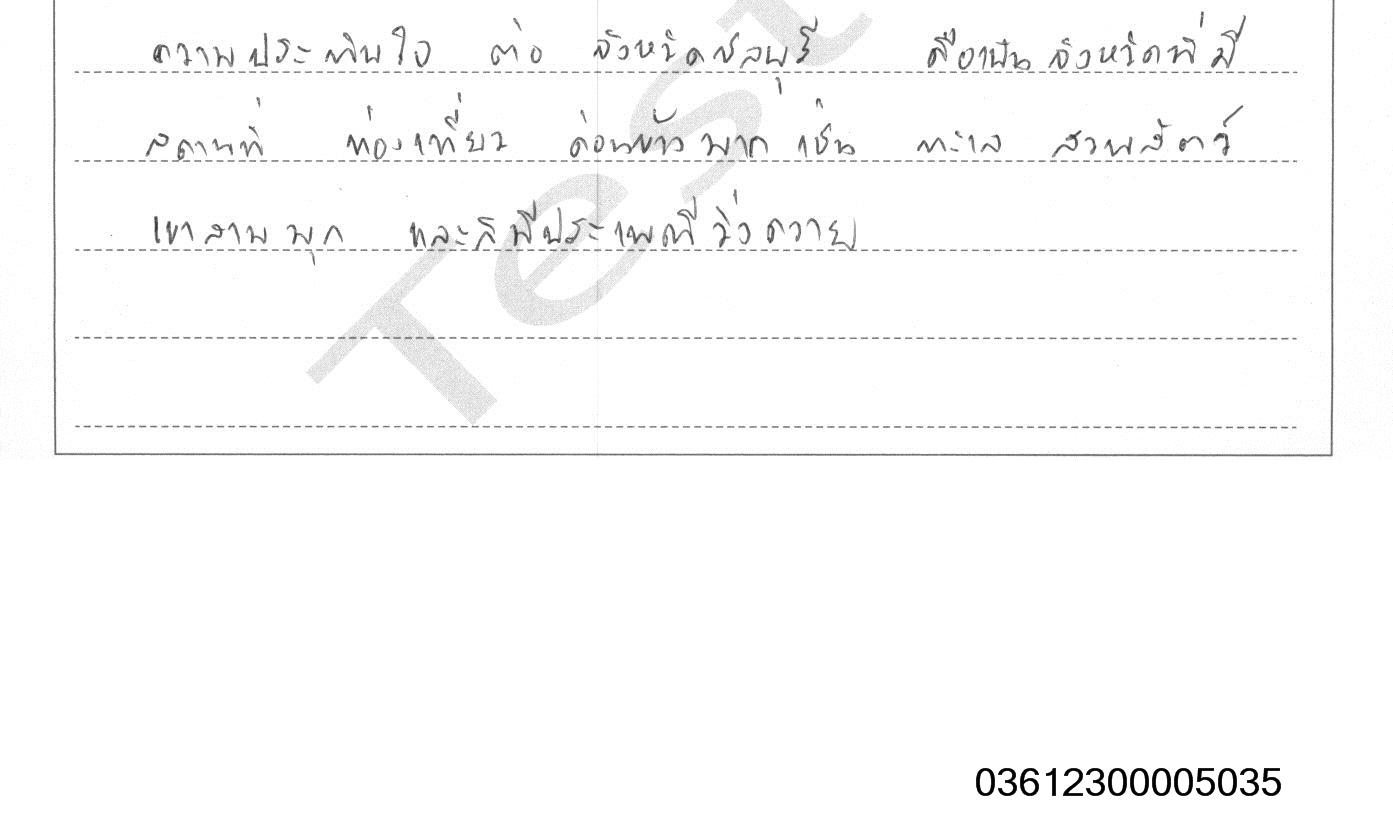 ความประทับใจ ต่อ จังหวัดชลบุรี คือเป็นจังหวัดที่มี
สถานที่ ท่องเที่ยว ค่อนข้าง มาก เช่น ทะเล สวนสัตว์
เขาสามมุก และก็มีประเพณีวิ่งควาย
Test
03612300005035